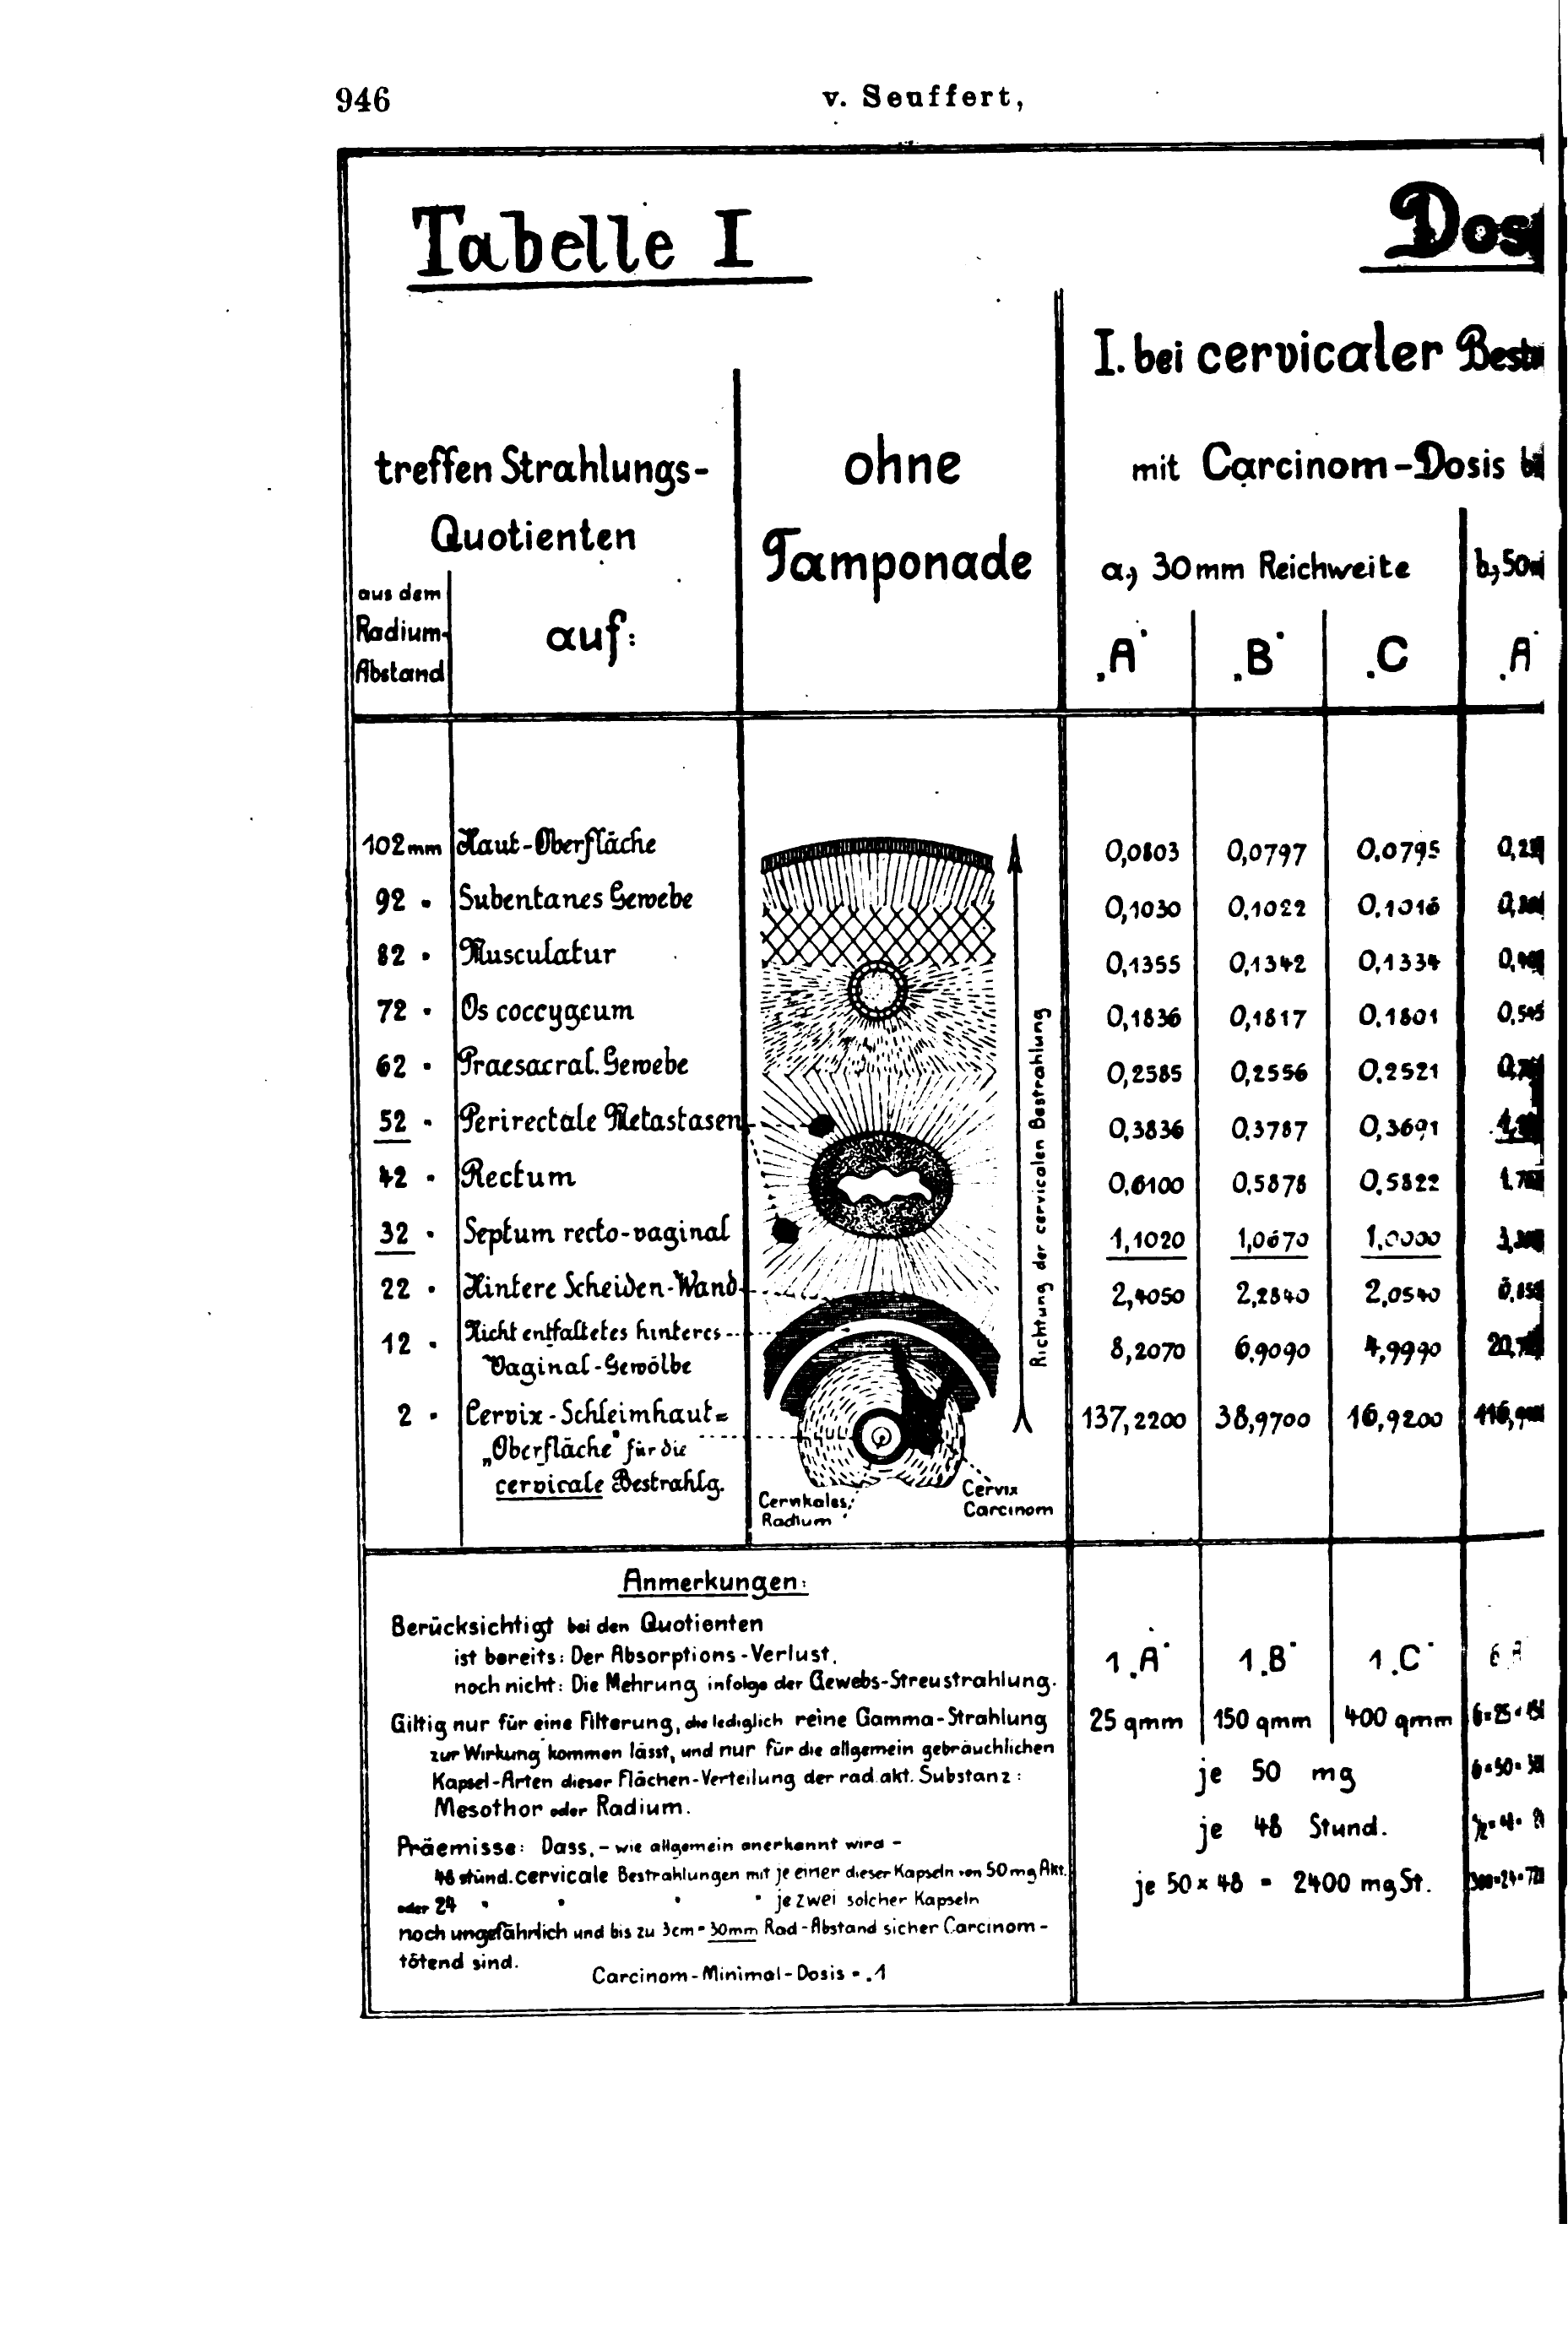 946
v. Seuffert,
Tabelle I
I. bei cervicaler
treffen Strahlungs-
Quotienten
aus dem
Radium-
Abstand
auf:
ohne
Tamponade
mit Carcinom-Dosis
a,) 30 mm Reichweite
„A“
„B“
„C
„A
102 mm Haut-Oberfläche 0,0803 0,0797 0,0795
92 " Subentanes Gewebe 0,1030 0,1022 0,1016
82 " Musculatur 0,1355 0,1342 0,1334
72 " Os coccygeum 0,1836 0,1817 0,1801
62 " Praesacral. Gewebe 0,2585 0,2556 0,2521
52 " Perirectale Metastasen 0,3836 0,3787 0,3691
42 " Rectum 0,6100 0,5878 0,5822
32 " Septum recto-vaginal 1,1020 1,0670 1,0000
22 " Hintere Scheiden-Wand 2,4050 2,2840 2,0540
12 " Nicht entfaltetes hinteres
Vaginal-Gewölbe 8,2070 6,9090 4,9990
2 " Cervix-Schleimhaut= 137,2200 38,9700 16,9200
„Oberfläche“ für die
cervicale Bestrahlg.
Richtung der cervicalen Bestrahlung
Cervikales
Radium
Cervix
Carcinom
Anmerkungen:
Berücksichtigt bei den Quotienten
ist bereits: Der Absorptions-Verlust.
noch nicht: Die Mehrung infolge der Gewebs-Streustrahlung.
Giltig nur für eine Filterung, die lediglich reine Gamma-Strahlung
zur Wirkung kommen lässt, und nur für die allgemein gebräuchlichen
Kapsel-Arten dieser Flächen-Verteilung der rad. akt. Substanz:
Mesothor oder Radium.
Präemisse: Dass, - wie allgemein anerkannt wird -
48 stünd. cervicale Bestrahlungen mit je einer dieser Kapseln von 50 mg Akt.
oder 24 " " " " je zwei solcher Kapseln
noch ungefährlich und bis zu 3cm = 30mm Rad-Abstand sicher Carcinom-
tötend sind.
Carcinom-Minimal-Dosis = „1
1 „A“ 1 „B“ 1 „C“
25 qmm 150 qmm 400 qmm
je 50 mg
je 48 Stund.
je 50 x 48 = 2400 mg St.